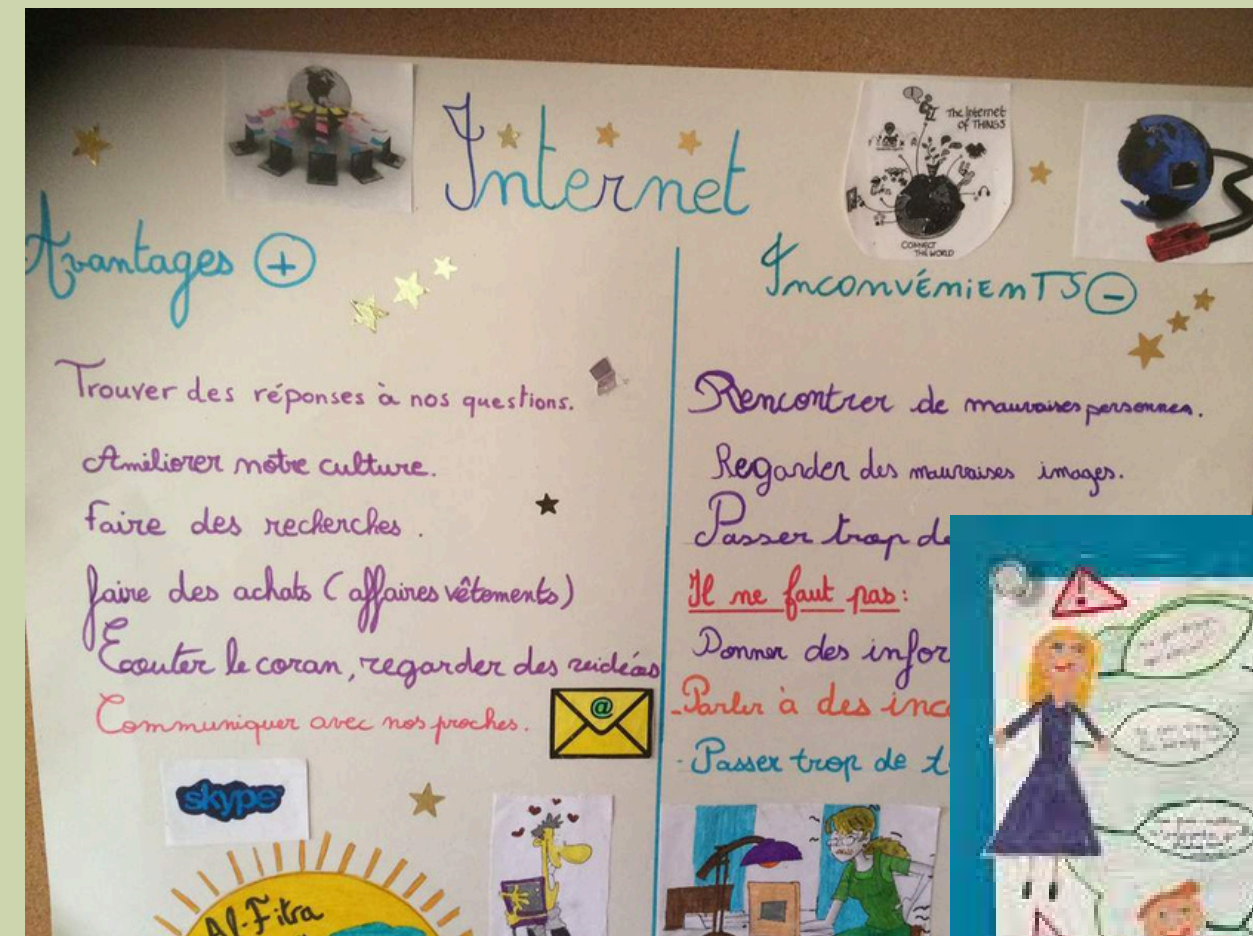 Internet
The Internet
OF THINGS
CONNECT
THE WORLD
Avantages +
Inconvénients -
Trouver des réponses à nos questions.
Améliorer notre culture.
Faire des recherches.
faire des achats (affaires vêtements)
Ecouter le coran, regarder des vidéos
Communiquer avec nos proches.
@
skype
Al-Fitra
Rencontrer de mauvaises personnes.
Regarder des mauvaises images.
Passer trop de
Il ne faut pas:
Donner des infor
- Parler à des inc
- Passer trop de t
!